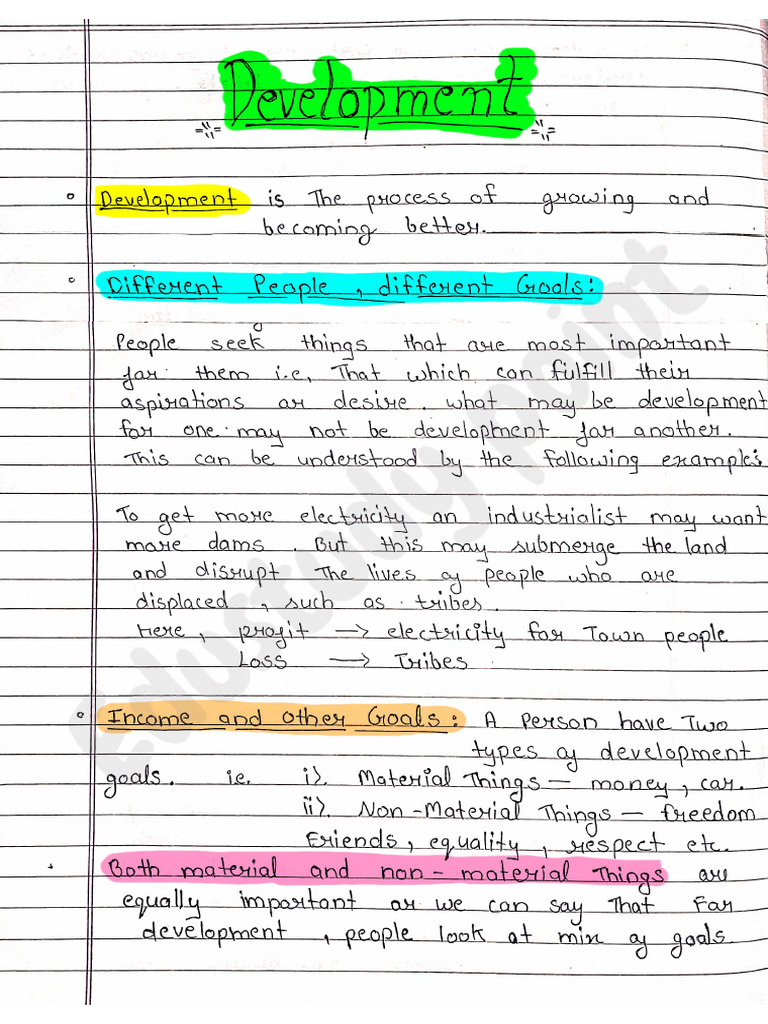 Development
Development is The process of growing and
becoming better.
Different People, different Goals:
People seek things that are most important
for them i.e, That which can fulfill their
aspirations or desire. what may be development
for one may not be development for another.
This can be understood by the following examples
To get more electricity an industrialist may want
more dams. But this may submerge the land
and disrupt The lives of people who are
displaced, such as tribes.
Here, profit → electricity for Town people
Loss → Tribes
Income and other Goals: A Person have Two
types of development
goals. ie. i). Material Things — money, car.
ii). Non-Material Things — freedom
Friends, equality, respect etc.
Both material and non-material Things are
equally important or we can say That For
development, people look at mix of goals
Edustudy point